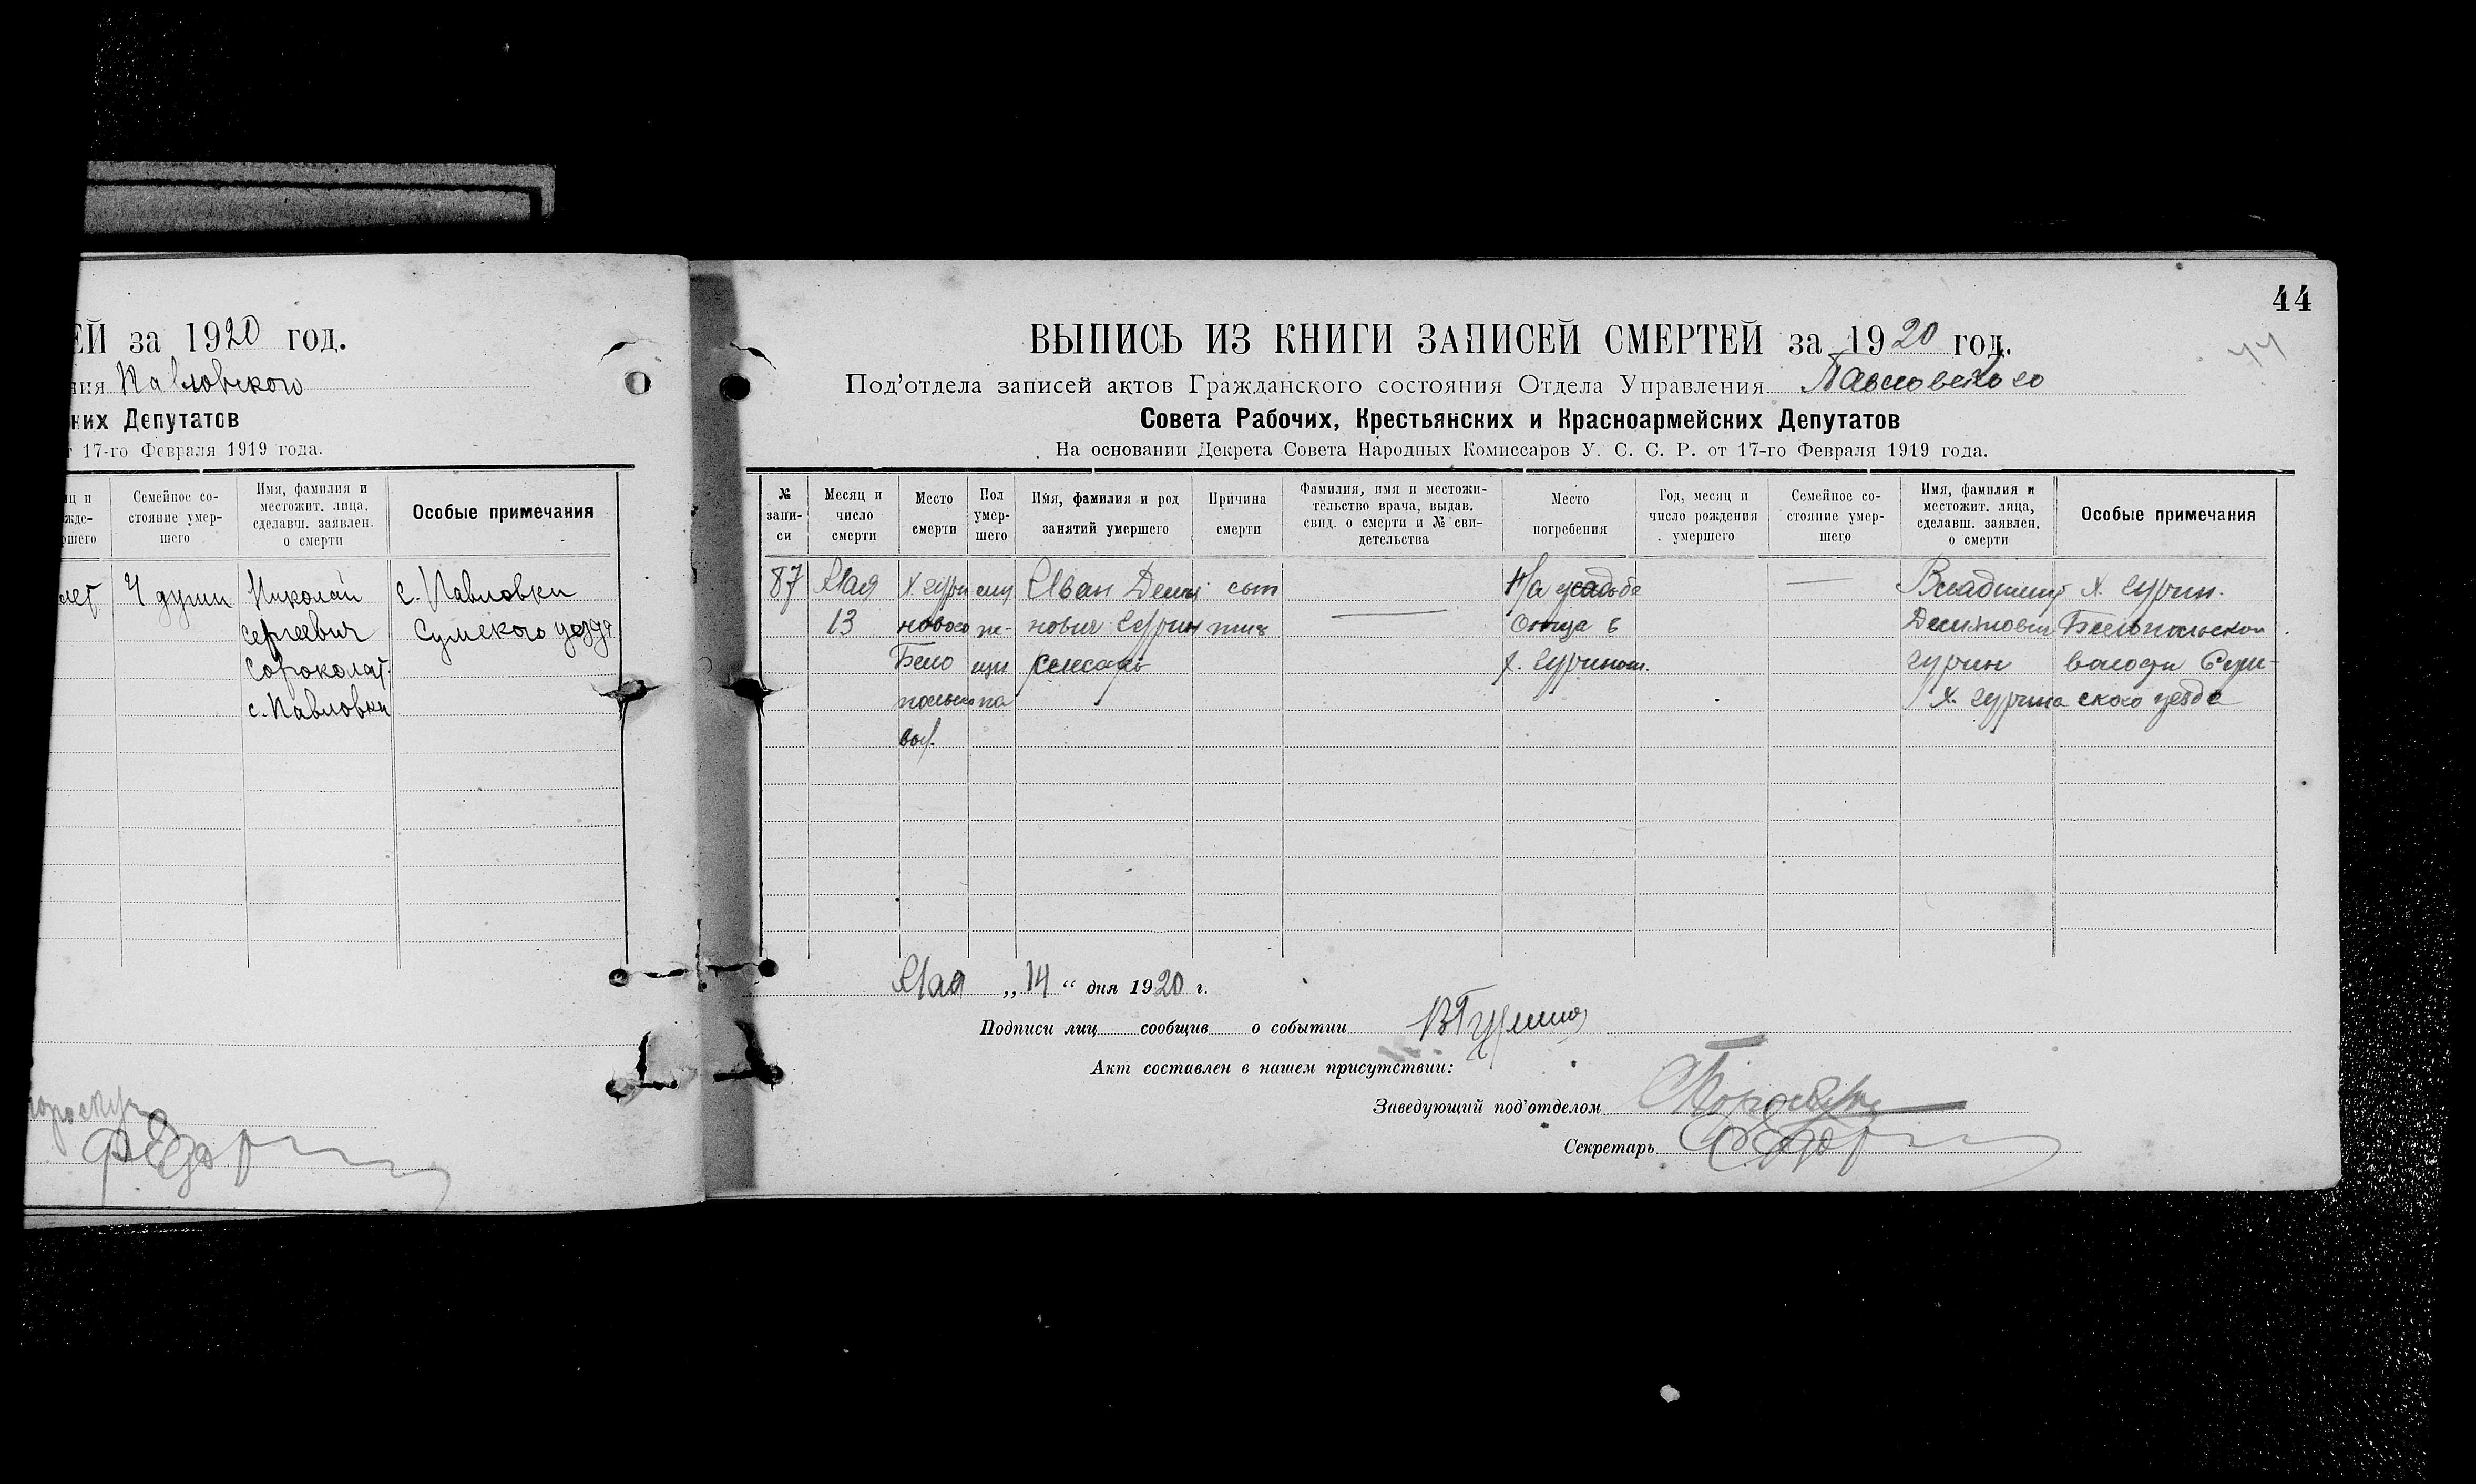 ЕЙ за 1920 год.
ния Павловского
ких Депутатов
т 17-го Февраля 1919 года.
Семейное со-
стояние умер-
шего
Имя, фамилия и
местожит. лица,
сделавш. заявлен.
о смерти
Особые примечания
лет 4 души Николай с. Павловки
Сергеевич Сумского уезда
Сороколат
с. Павловки
44
44
ВЫПИСЬ ИЗ КНИГИ ЗАПИСЕЙ СМЕРТЕЙ за 1920 год.
Под'отдела записей актов Гражданского состояния Отдела Управления Павловского
Совета Рабочих, Крестьянских и Красноармейских Депутатов
На основании Декрета Совета Народных Комиссаров У. С. С. Р. от 17-го Февраля 1919 года.
№
запи-
си
Месяц и
число
смерти
Место
смерти
Пол
умер-
шего
Имя, фамилия и род
занятий умершего
Причина
смерти
Фамилия, имя и местожи-
тельство врача, выдав.
свид. о смерти и № сви-
детельства
Место
погребения
Год, месяц и
число рождения
умершего
Семейное со-
стояние умер-
шего
Имя, фамилия и
местожит. лица,
сделавш. заявлен.
о смерти
Особые примечания
87 Мая Х Гури Иван Демья На усадьбе Владимир Х. Гурин.
13 нового нович Гурин Отца в Демянович Белопольской
Бело слесарь х. Гурином. Гурин волости Сум-
польск Х. Гурина ского уезда
вол.
Мая „14“ дня 1920 г.
Подписи лиц сообщив о событии В Гурин
Акт составлен в нашем присутствии:
Заведующий под'отделом
Секретарь